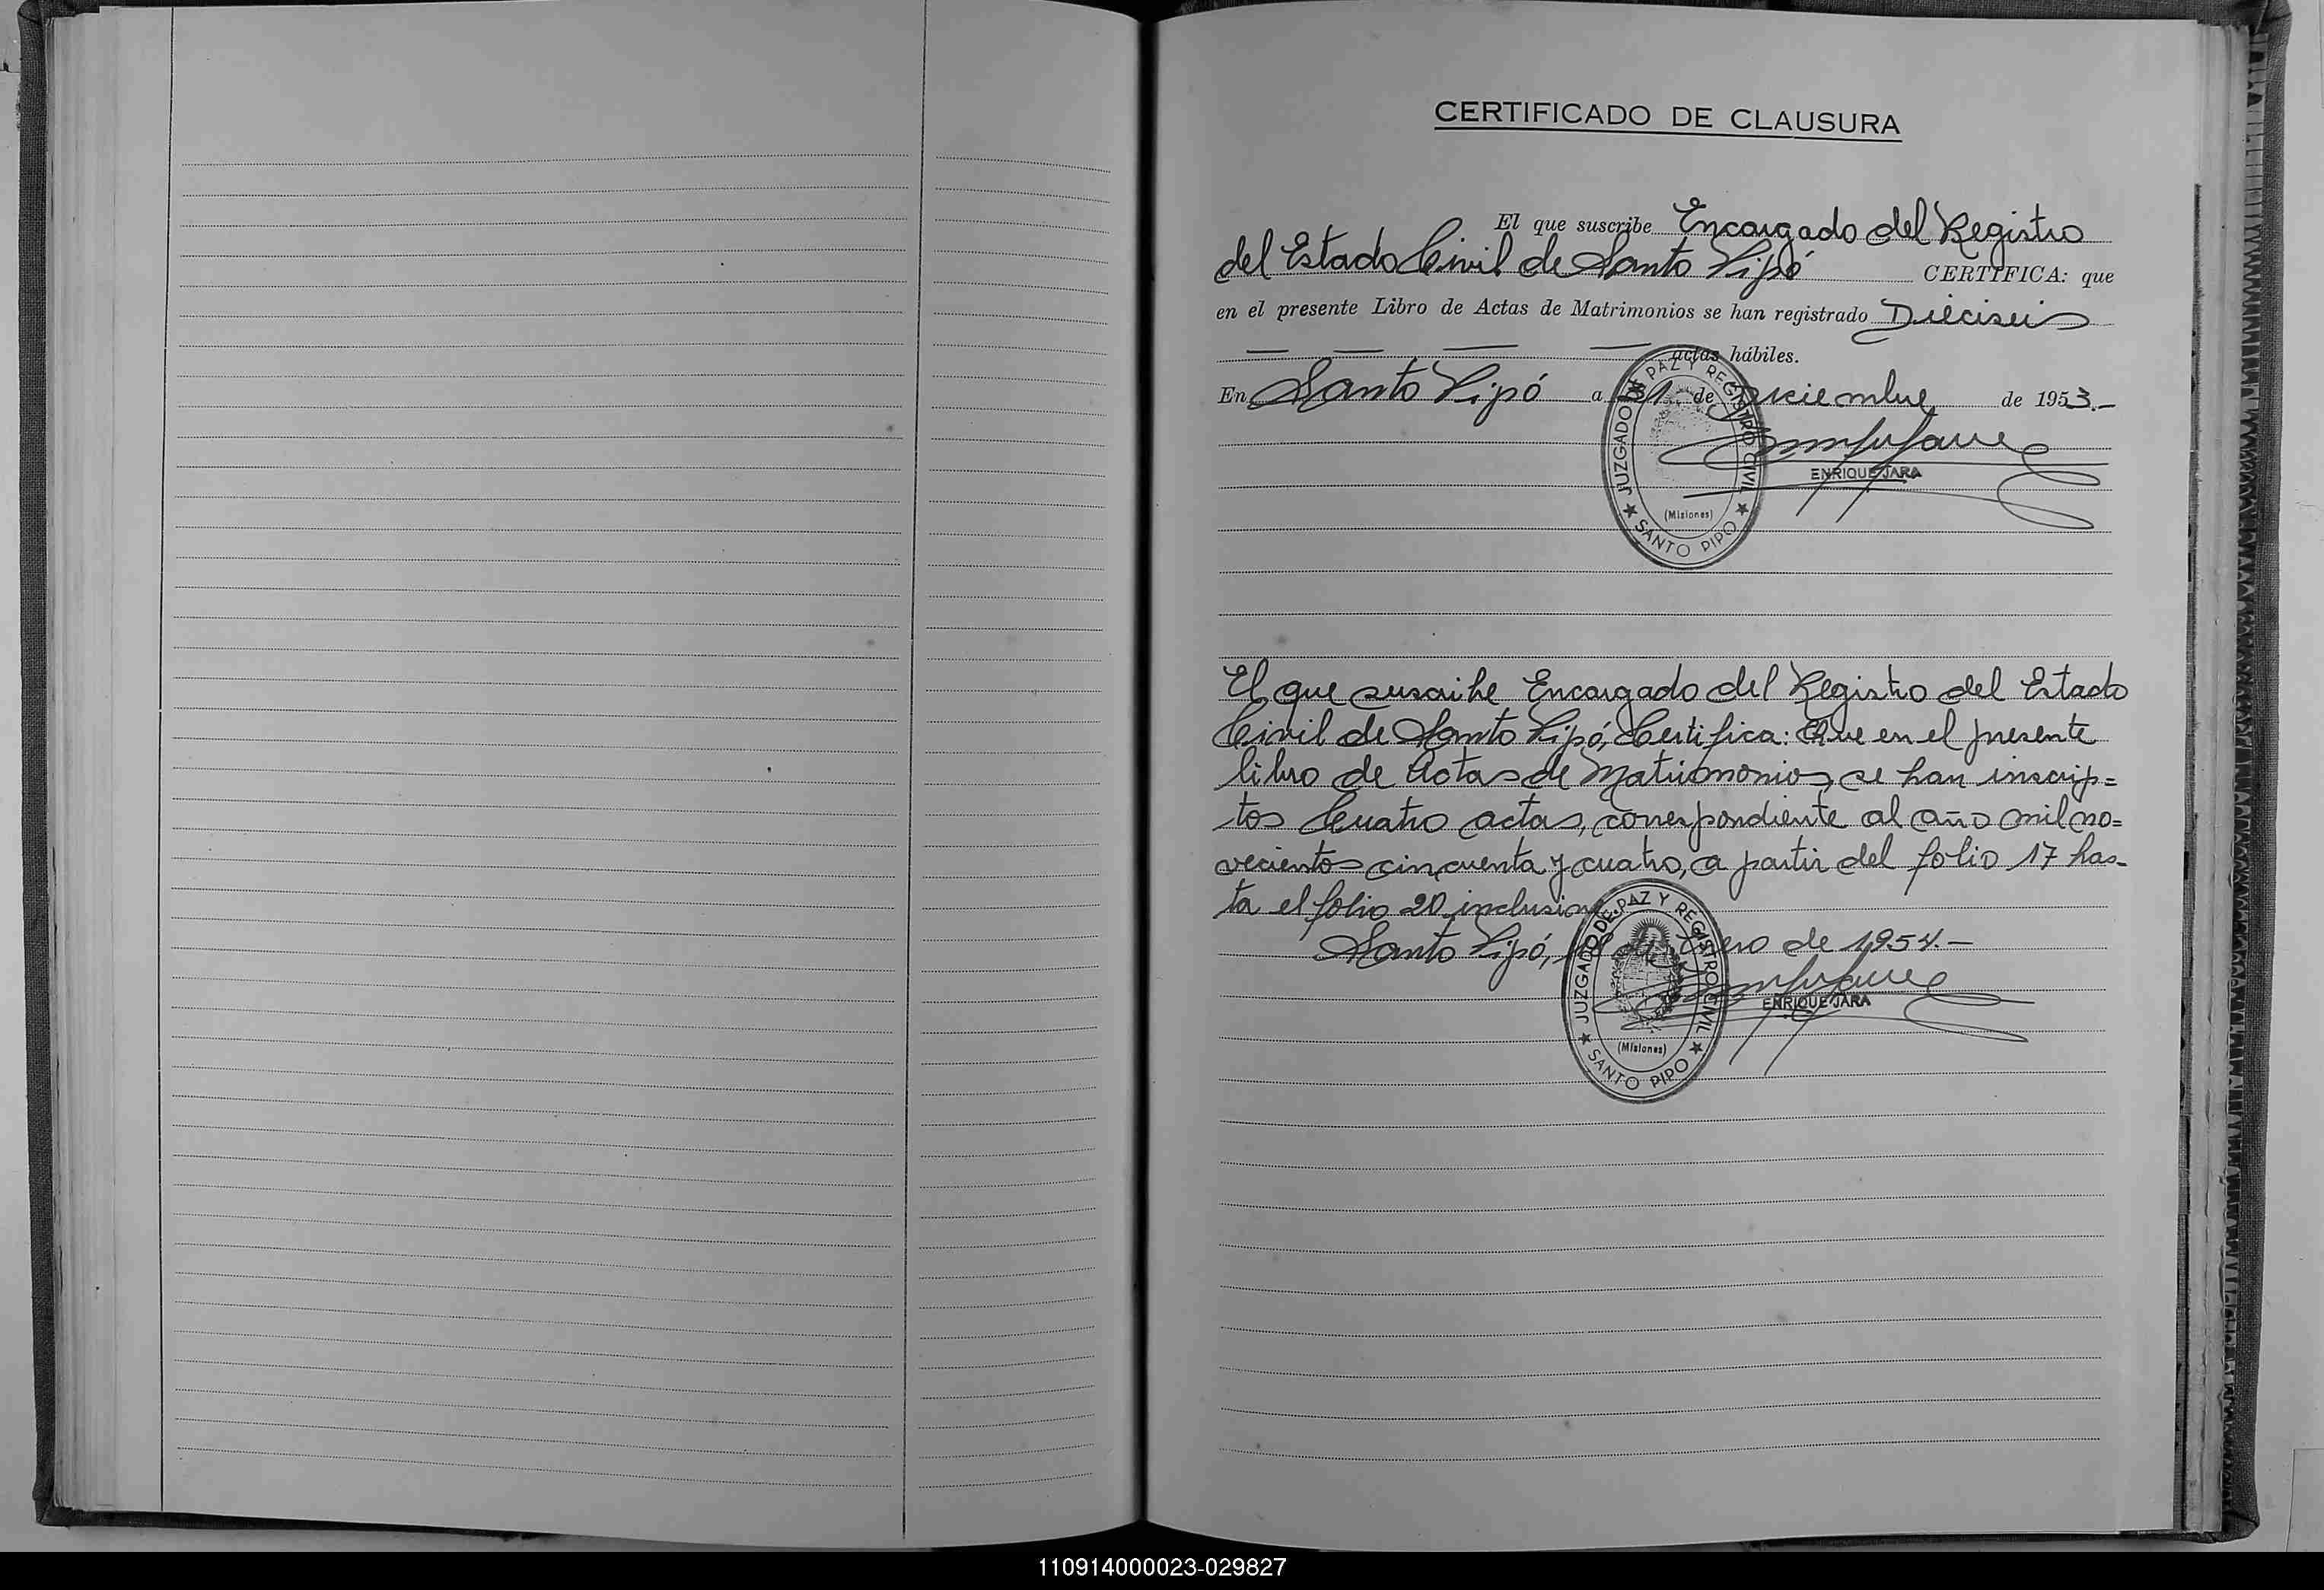 CERTIFICADO DE CLAUSURA
El que suscribe Encargado del Registro
del Estado Civil de Santo Pipó CERTIFICA: que
en el presente Libro de Actas de Matrimonios se han registrado Dieciseis
actas hábiles.
En Santo Pipó a 31 de Diciembre de 1953.-
JUZGADO DE PAZ Y REGISTRO CIVIL
ENRIQUE JARA
(Misiones)
SANTO PIPO
El que suscribe Encargado del Registro del Estado
Civil de Santo Pipó, Certifica: Que en el presente
libro de Actas de Matrimonios, se han inscrip=
tos Cuatro actas, correspondiente al año mil no=
vecientos cincuenta y cuatro, a partir del folio 17 has-
ta el folio 20 inclusive
Santo Pipó, de de 1954.-
JUZGADO DE PAZ Y REGISTRO CIVIL
ENRIQUE JARA
(Misiones)
SANTO PIPO
110914000023-029827